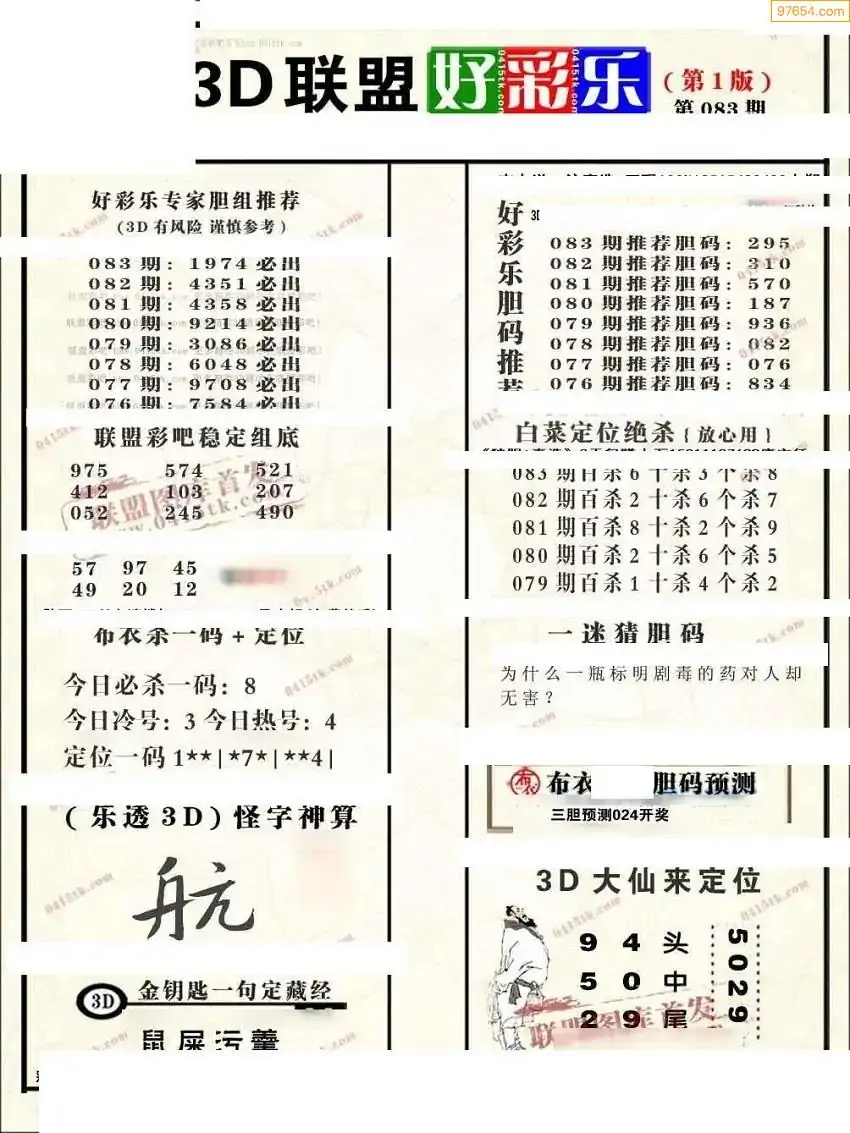 97654.com
3D联盟好彩乐
(第1版)
第083期
好彩乐专家胆组推荐
(3D有风险 谨慎参考)
083期: 1974必出
082期: 4351必出
081期: 4358必出
080期: 9214必出
079期: 3086必出
078期: 6048必出
077期: 9708必出
076期: 7584必出
联盟彩吧稳定组底
975 574 521
412 103 207
052 245 490
57 97 45
49 20 12
布衣杀一码+定位
今日必杀一码: 8
今日冷号: 3 今日热号: 4
定位一码1**|*7*|**4|
(乐透3D)怪字神算
航
3D 金钥匙一句定藏经
鼠屎污羹
好彩乐胆码推荐
083期推荐胆码: 295
082期推荐胆码: 310
081期推荐胆码: 570
080期推荐胆码: 187
079期推荐胆码: 936
078期推荐胆码: 082
077期推荐胆码: 076
076期推荐胆码: 834
白菜定位绝杀{放心用}
083期百杀6十杀3个杀8
082期百杀2十杀6个杀7
081期百杀8十杀2个杀9
080期百杀2十杀6个杀5
079期百杀1十杀4个杀2
一迷猜胆码
为什么一瓶标明剧毒的药对人却
无害?
布衣 胆码预测
三胆预测024开奖
3D大仙来定位
9 4 头
5 0 中
2 9 尾
5029
联盟图库首发
www.0415tk.com